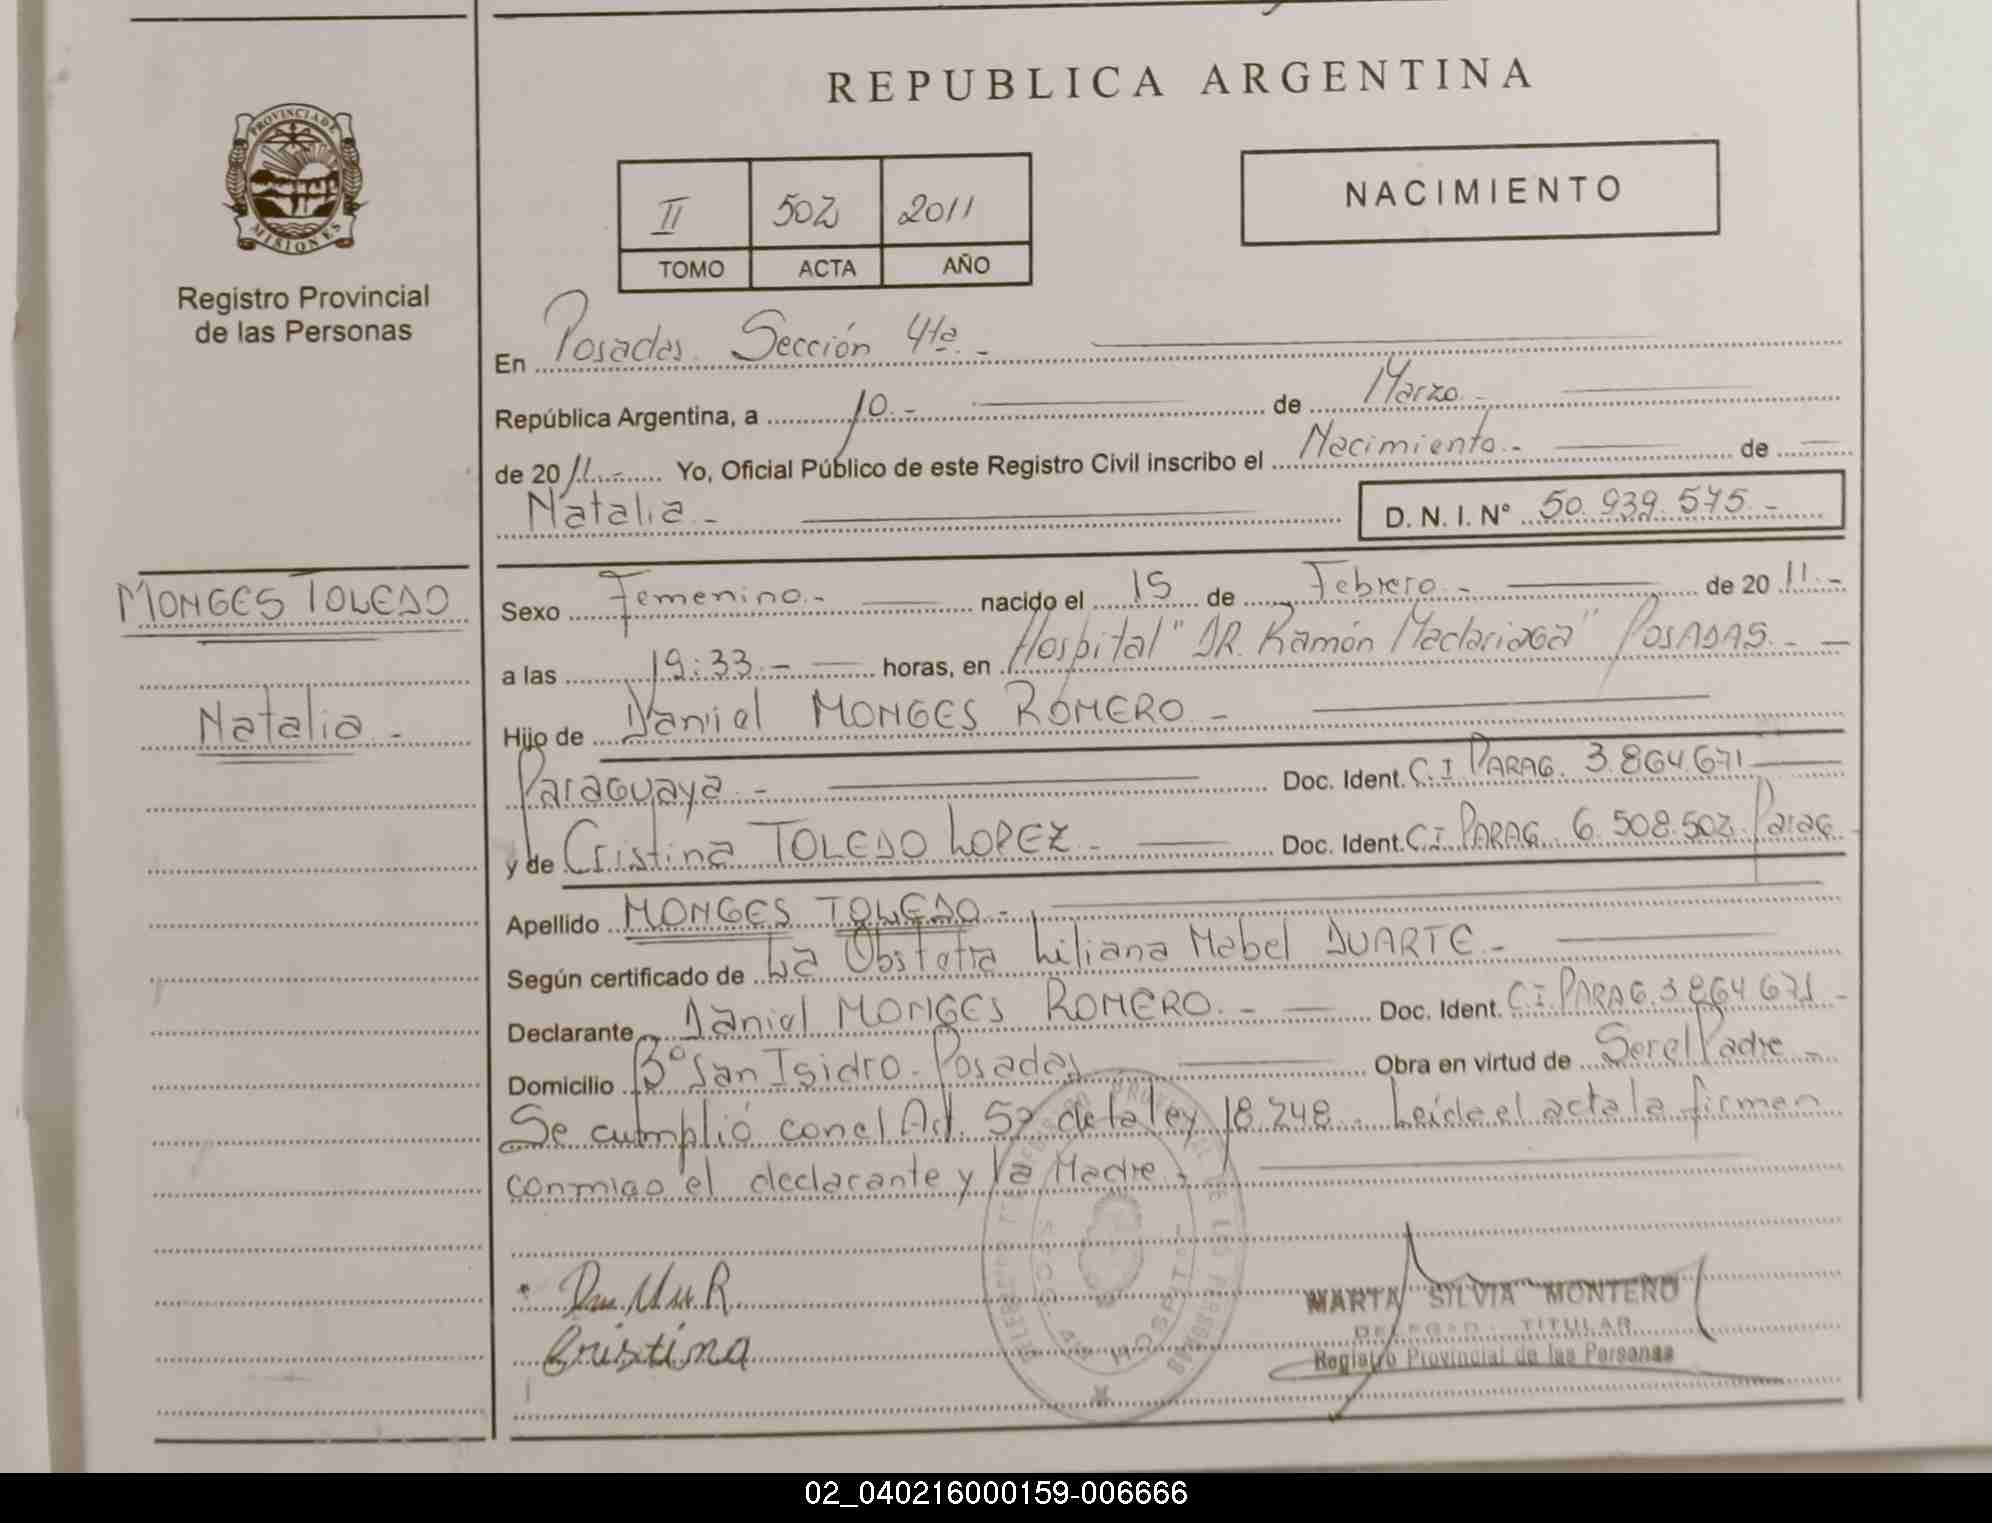 REPUBLICA ARGENTINA
PROVINCIA DE
MISIONES
Registro Provincial
de las Personas
II 502 2011
TOMO ACTA AÑO
NACIMIENTO
En Posadas Sección 4ta.-
República Argentina, a 10.- de Marzo.-
de 2011.- Yo, Oficial Público de este Registro Civil inscribo el Nacimiento.- de
Natalia.- D. N. I. N° 50.939.575.-
MONGES TOLEDO
Natalia.-
Sexo Femenino.- nacido el 15 de Febrero.- de 2011.-
a las 19:33.- horas, en Hospital "DR. Ramón Madariaga" POSADAS.-
Hijo de Daniel MONGES ROMERO.-
Paraguaya.- Doc. Ident. C.I PARAG. 3.864.671
y de Cristina TOLEDO LOPEZ.- Doc. Ident. C.I. PARAG. 6.508.502. Parag
Apellido MONGES TOLEDO.-
Según certificado de La Obstetra Liliana Mabel DUARTE.-
Declarante Daniel MONGES ROMERO.- Doc. Ident. C.I. PARAG. 3.864.671.-
Domicilio B° San Isidro. Posadas Obra en virtud de Ser el Padre.-
Se cumplió con el Art. 5º de la ley 18.248.- Leída el acta la firman
conmigo el declarante y la Madre.-
Cristina
MARTA SILVIA MONTERO
TITULAR
Registro Provincial de las Personas
02_040216000159-006666